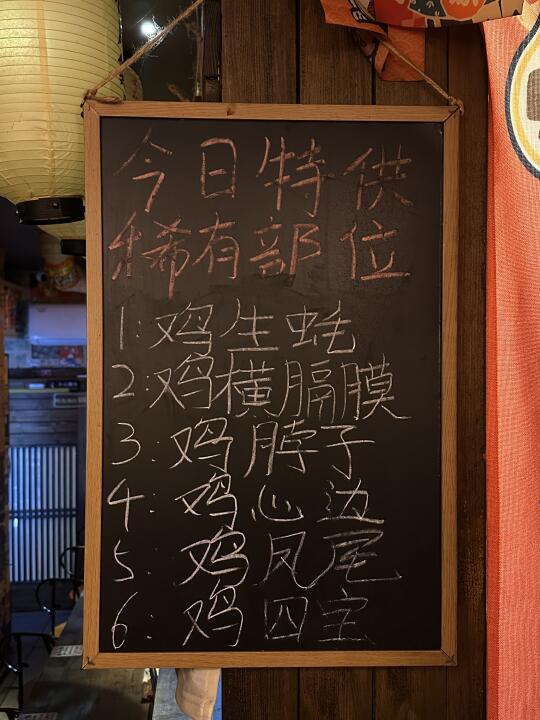 今日特供
稀有部位
1:鸡生蚝
2:鸡横膈膜
3:鸡脖子
4:鸡心边
5:鸡凤尾
6:鸡四宝